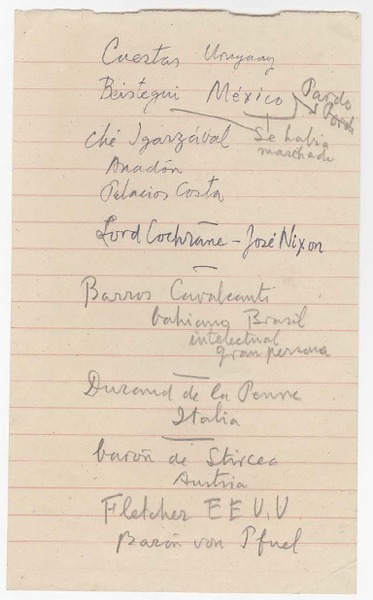 Cuestas Uruguay
Beistegui México Pardo
Se había
marchado
Ché Igarzával
Anadón
Palacios Costa
Lord Cochrane - José Nixon
Barros Cavalcanti
bahiano Brasil
intelectual
gran persona
Durand de la Penne
Italia
barón de Stircea
Austria
Fletcher EE.UU
Barón von Pfuel